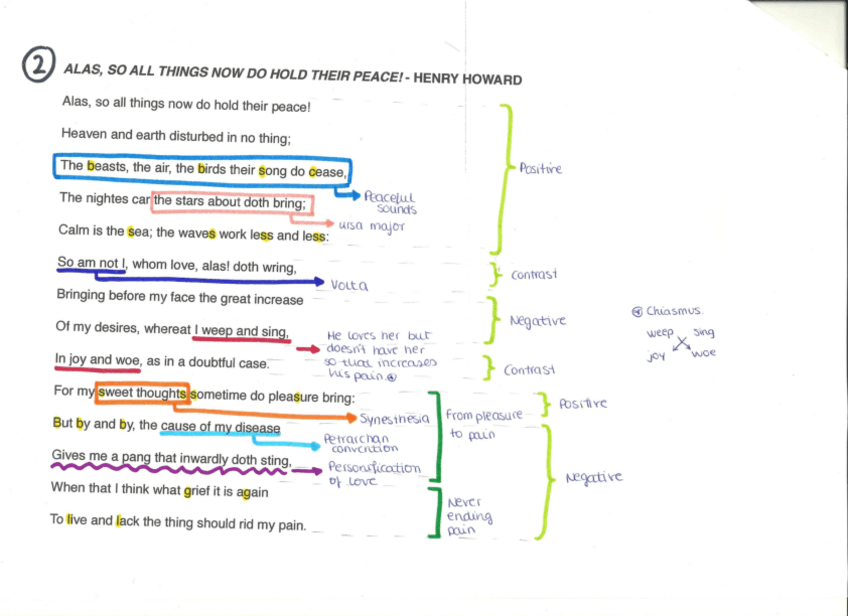 2
ALAS, SO ALL THINGS NOW DO HOLD THEIR PEACE! - HENRY HOWARD
Alas, so all things now do hold their peace!
Heaven and earth disturbed in no thing;
The beasts, the air, the birds their song do cease,
The nightes car the stars about doth bring;
Calm is the sea; the waves work less and less:
So am not I, whom love, alas! doth wring,
Bringing before my face the great increase
Of my desires, whereat I weep and sing,
In joy and woe, as in a doubtful case.
For my sweet thoughts sometime do pleasure bring:
But by and by, the cause of my disease
Gives me a pang that inwardly doth sting,
When that I think what grief it is again
To live and lack the thing should rid my pain.
Peaceful
sounds
ursa major
Volta
He loves her but
doesn't have her
so that increases
his pain. *
Synesthesia
Petrarchan
convention
Personification
of love
From pleasure
to pain
Never
ending
pain
Positive
Contrast
Negative
Contrast
Positive
Negative
* Chiasmus.
weep sing
joy woe